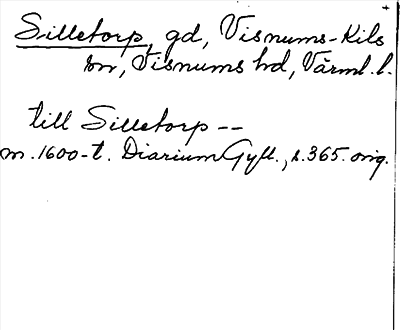 Silletorp, gd, Visnums-Kils
sn, Visnums hd, Värml. l.
till Silletorp --
m. 1600-t. Diarium Gyll., s. 365. orig.